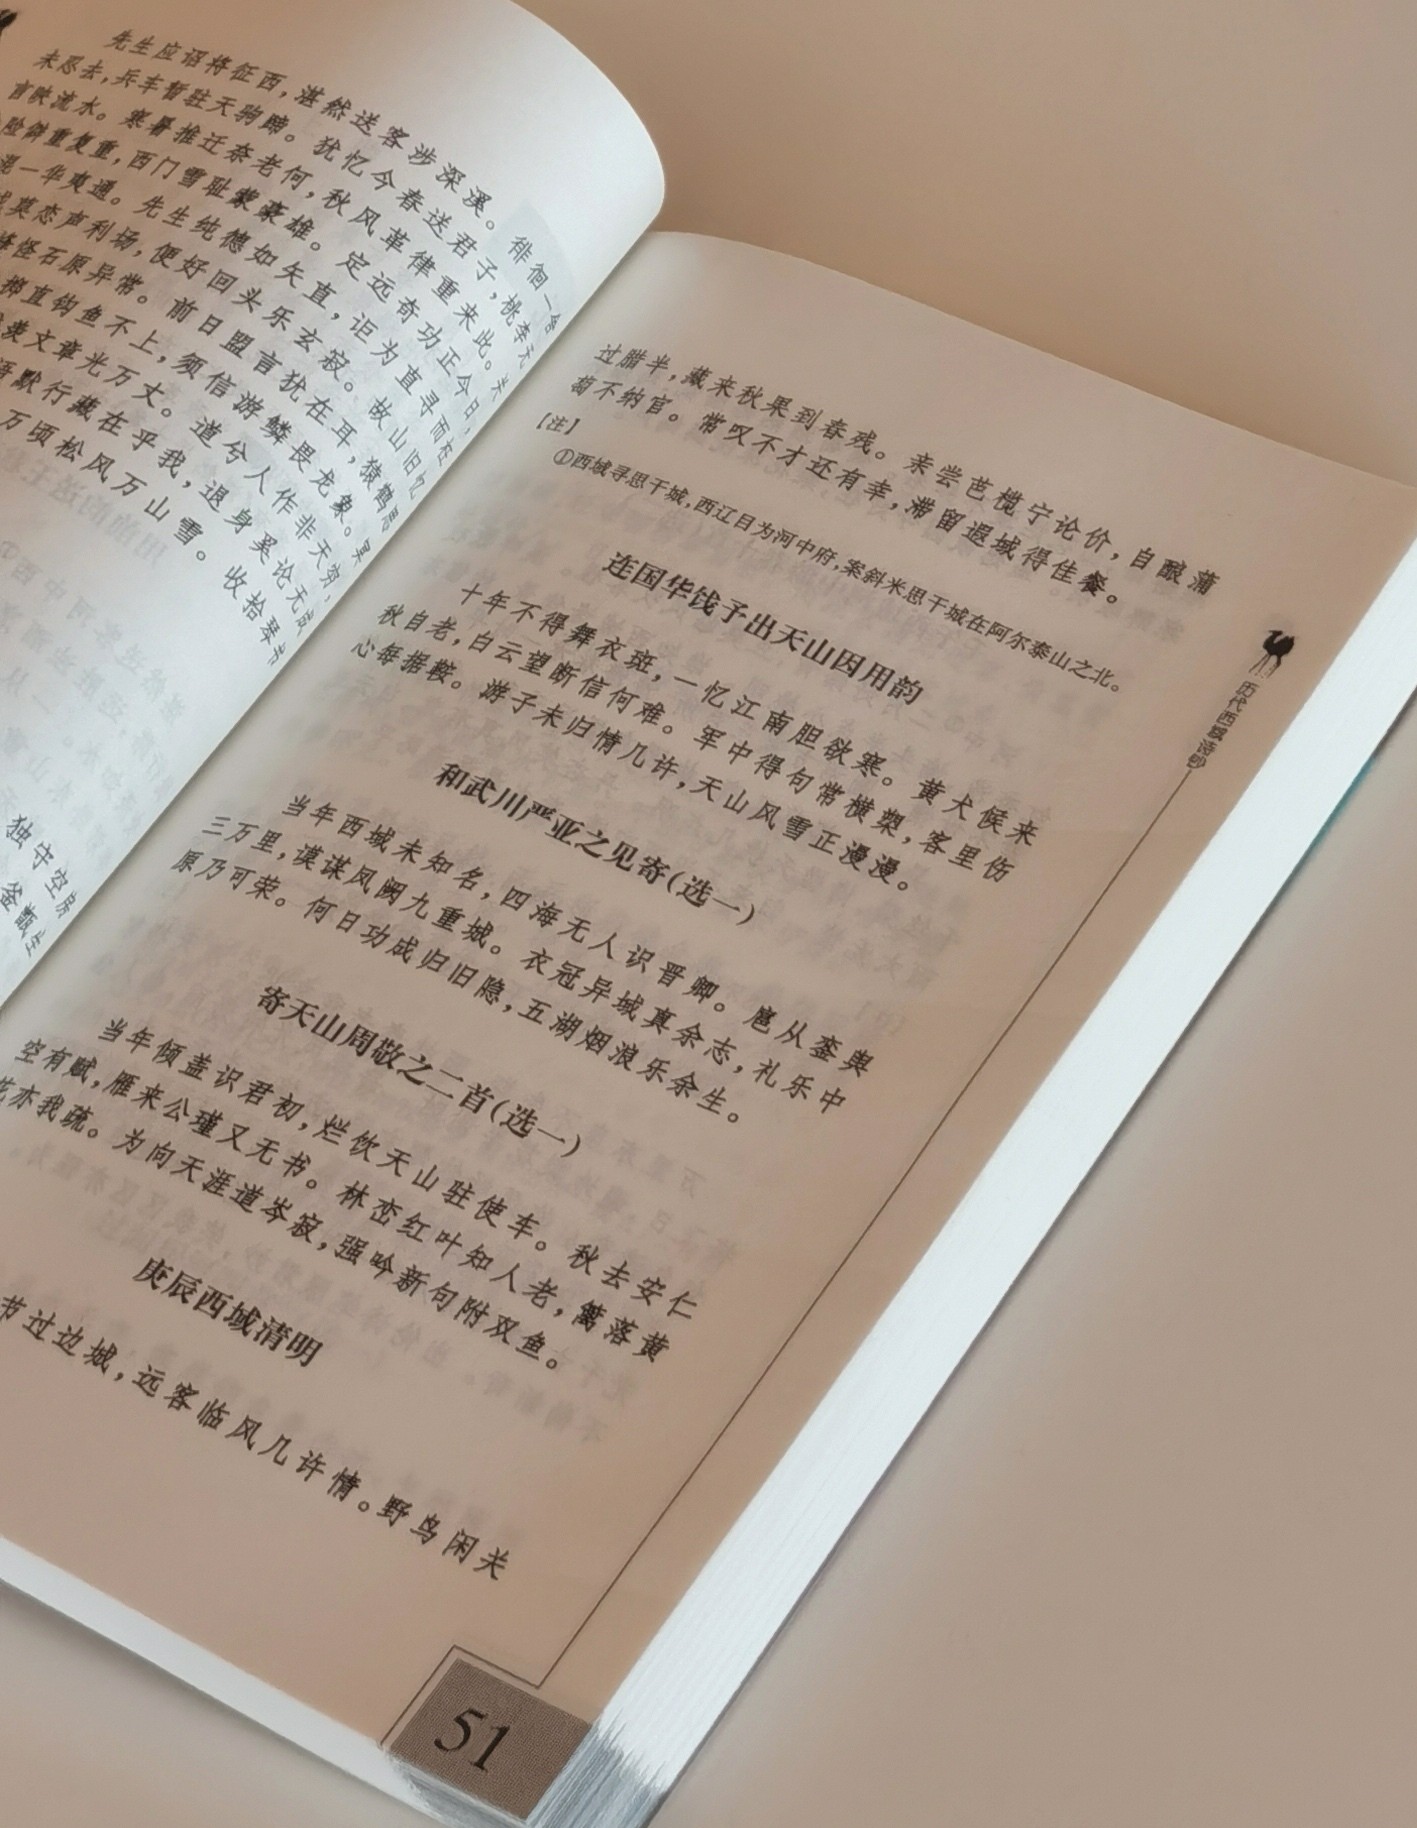 先生应诏将征西，湛然送客涉深溪。徘徊一
未忍去，兵车暂驻天驹蹄。犹忆今春送君子，桃李无
言映流水。寒暑推迁奈老何，秋风革律重来此。
险僻重复重，西门雪耻蒙豪雄。定远奇功正今日，
混一华夷通。先生纯德如矢直，讵为直寻而枉
莫恋声利场，便好回头乐玄寂。故山旧忆
怪石原异常。前日盟言犹在耳，猿鹤
掷直钩鱼不上，须信游鳞畏龙象。
羡文章光万丈。道兮人作非天穷，
语默行藏在乎我，退身奚论无
万顷松风万山雪。收拾琴书
独守空房
釜甑生
过腊半，藏来秋果到春残。亲尝芭榄宁论价，自酿蒲
萄不纳官。常叹不才还有幸，滞留遐域得佳餐。
［注］
①西域寻思干城，西辽目为河中府，案斜米思干城在阿尔泰山之北。
连国华饯予出天山因用韵
十年不得舞衣斑，一忆江南胆欲寒。黄犬候来
秋自老，白云望断信何难。军中得句常横槊，客里伤
心每据鞍。游子未归情几许，天山风雪正漫漫。
和武川严亚之见寄(选一)
当年西域未知名，四海无人识晋卿。扈从銮舆
三万里，谟谋凤阙九重城。衣冠异域真余志，礼乐中
原乃可荣。何日功成归旧隐，五湖烟浪乐余生。
寄天山周敬之二首(选一)
当年倾盖识君初，烂饮天山驻使车。秋去安仁
空有赋，雁来公瑾又无书。林峦红叶知人老，篱落黄
花亦我疏。为向天涯道岑寂，强吟新句附双鱼。
庚辰西域清明
节过边城，远客临风几许情。野鸟闲关
历代西域诗钞
51